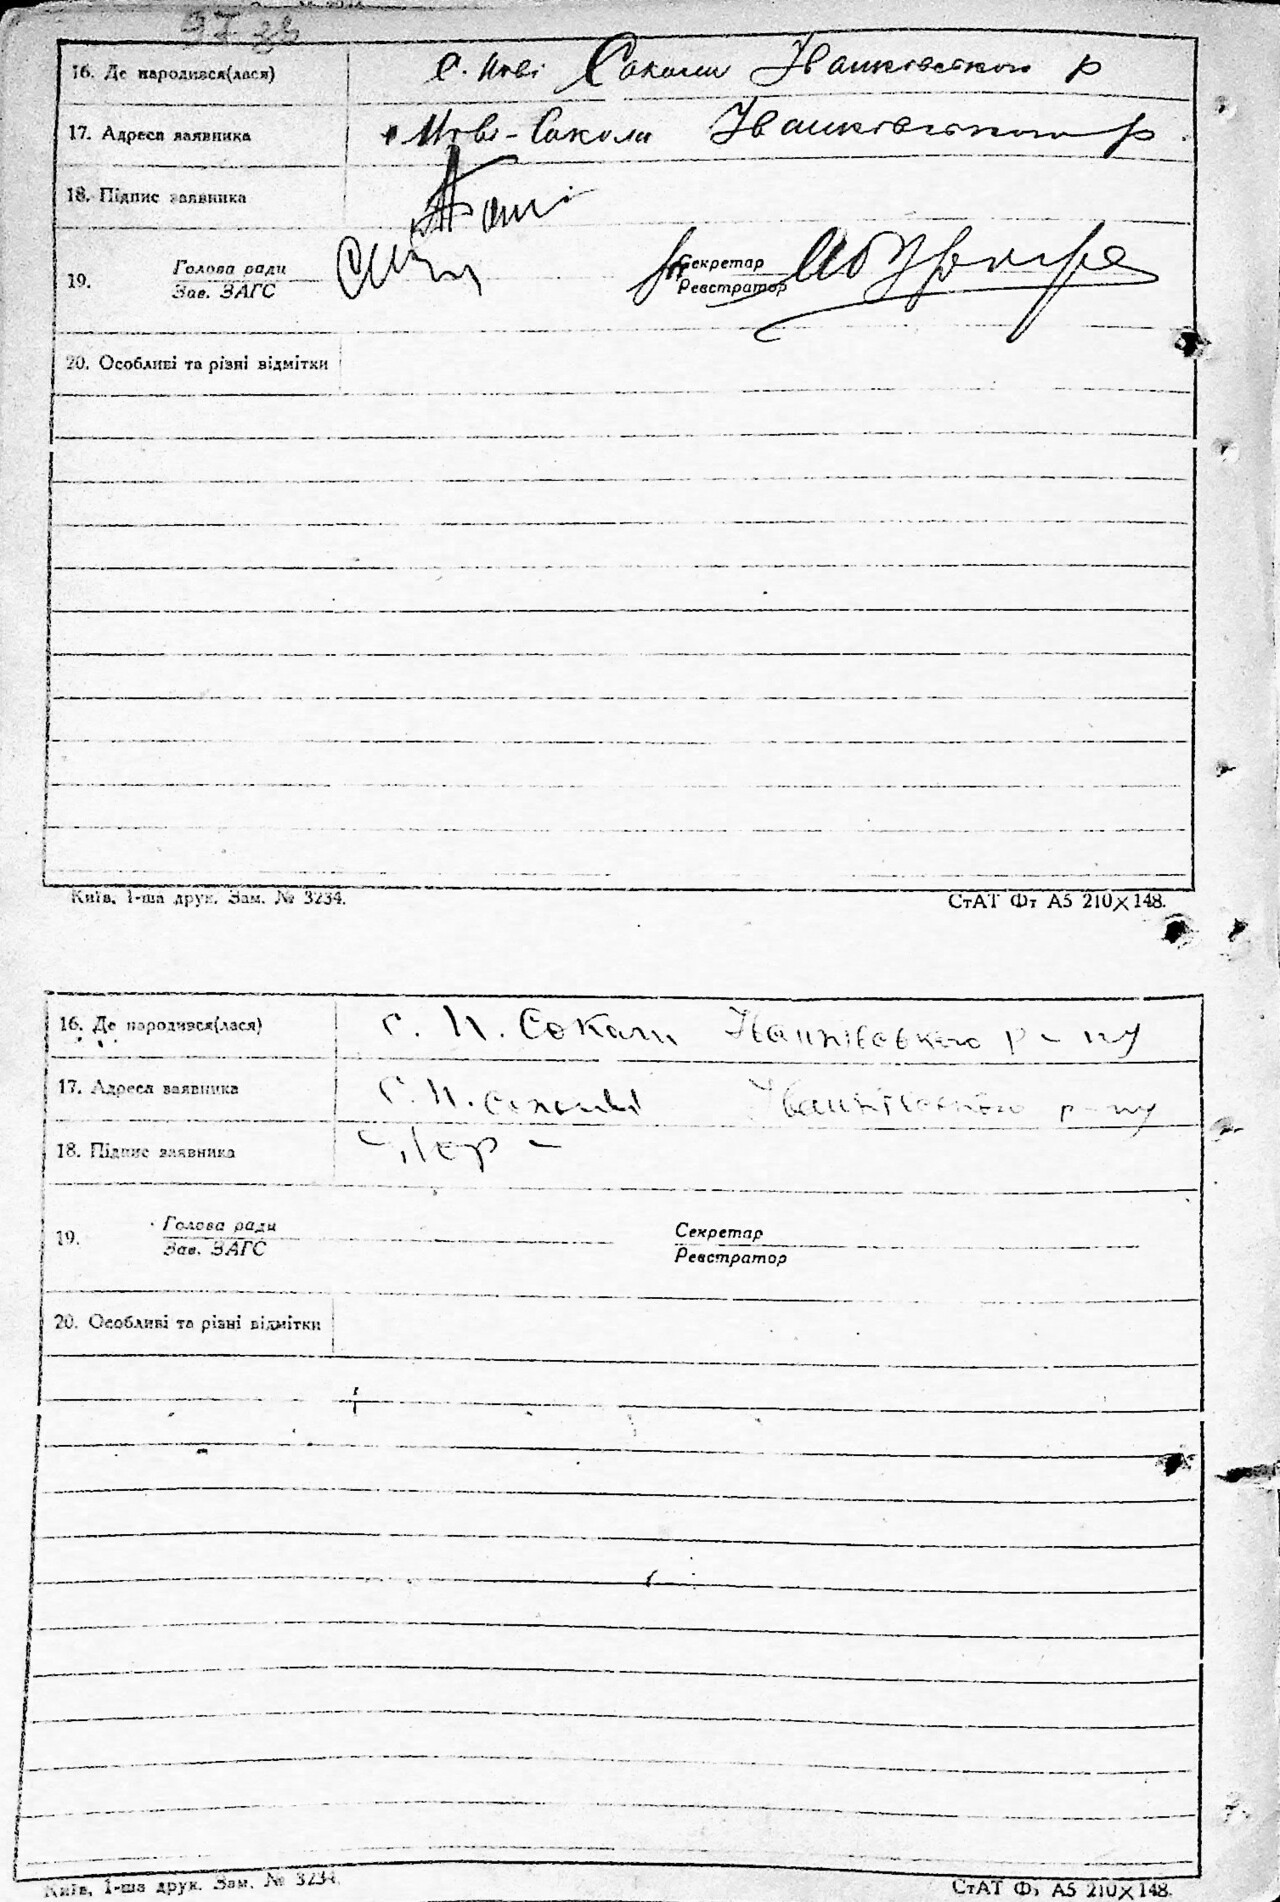 16. Де народився(лася) с. Нові Соколи Іванківського р
17. Адреса заявника Нові-Соколи Іванківського р.
18. Підпис заявника
19. Голова ради Секретар
Зав. ЗАГС Реєстратор
20. Особливі та різні відмітки
Київ, 1-ша друк. Зам. № 3234. СтАТ Фт А5 210×148.
16. Де народився(лася) с. Н. Соколи Іванківського р-ну
17. Адреса заявника с. Н. Соколи Іванківського р-ну
18. Підпис заявника
19. Голова ради Секретар
Зав. ЗАГС Реєстратор
20. Особливі та різні відмітки
Київ, 1-ша друк. Зам. № 3234. СтАТ Фт А5 210×148.